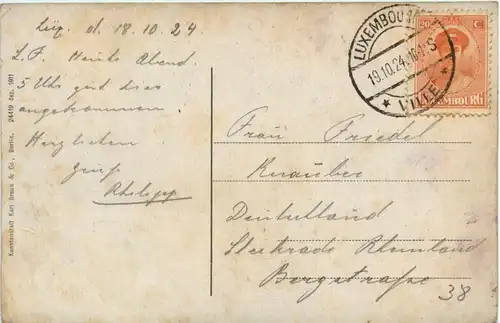 Lux. d. 18.10.24
L.F. Heute Abend
5 Uhr gut hier
angekommen.
Herzlichen
Gruß
Philipp
Kunstanstalt Karl Braun & Co., Berlin. 24419 dep. 1911
LUXEMBOU
19.10.24.
* VILLE *
20 C
LUXEMBOURG
Frau Friedel
Knauber
Deutschland
Sterkrade Rheinland
Bergstraße
38